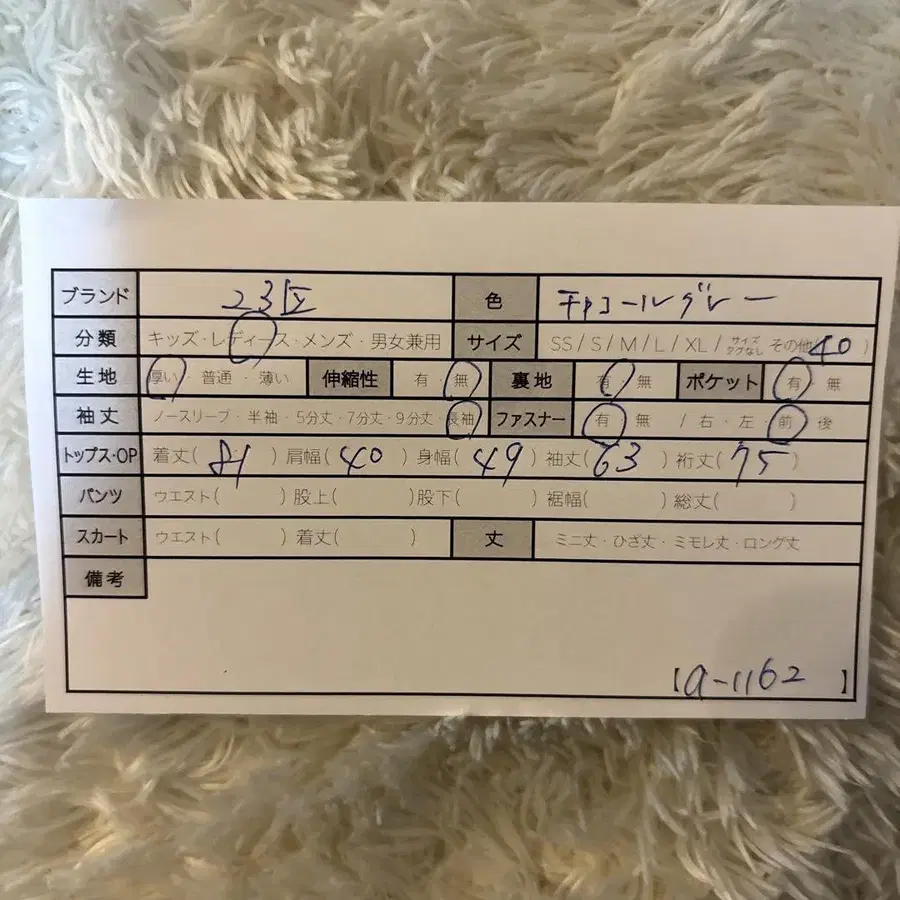 ブランド 23区 色 チャコールグレー
分類 キッズ・レディース・メンズ・男女兼用 サイズ SS / S / M / L / XL / サイズタグなし その他( 40 )
生地 厚い・普通・薄い 伸縮性 有・無 裏地 有・無 ポケット 有・無
袖丈 ノースリーブ・半袖・5分丈・7分丈・9分丈・長袖 ファスナー 有・無 / 右・左・前・後
トップス・OP 着丈( 81 ) 肩幅( 40 ) 身幅( 49 ) 袖丈( 63 ) 裄丈( 75 )
パンツ ウエスト( ) 股上( ) 股下( ) 裾幅( ) 総丈( )
スカート ウエスト( ) 着丈( ) 丈 ミニ丈・ひざ丈・ミモレ丈・ロング丈
備考
【a-1162 】